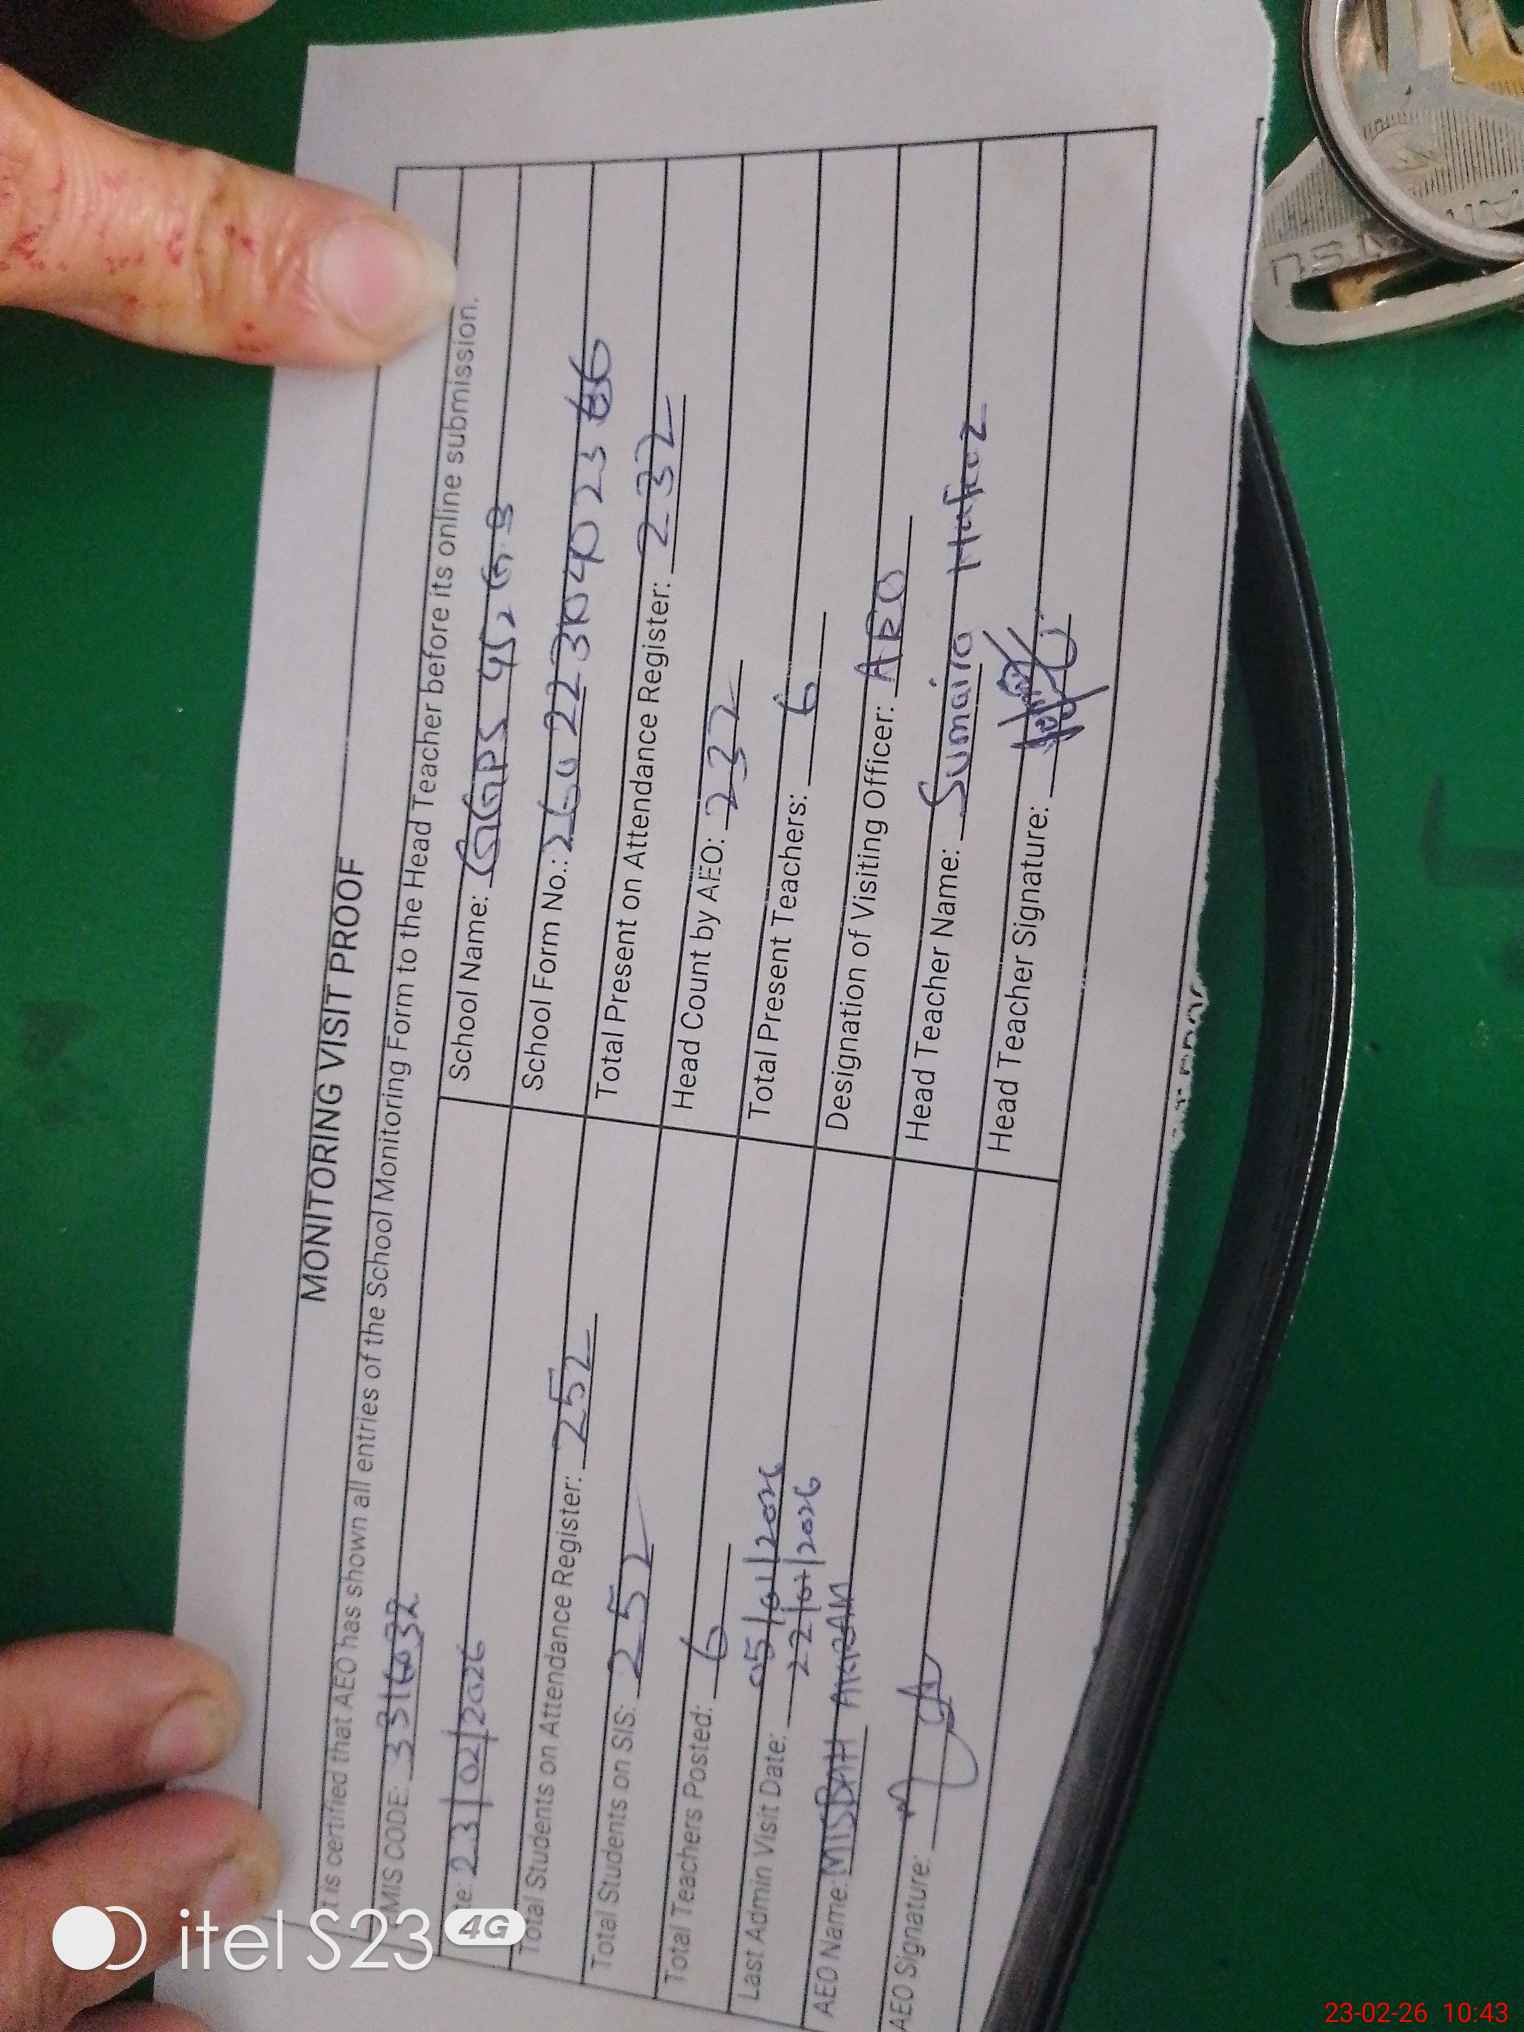 MONITORING VISIT PROOF
t is certified that AEO has shown all entries of the School Monitoring Form to the Head Teacher before its online submission.
MIS CODE: 33160032
School Name: GGPS 452 G.B
te: 23/02/2026
School Form No.:
Total Students on Attendance Register: 252
Total Present on Attendance Register: 232
Total Students on SIS: 252
Head Count by AEO: 232
Total Teachers Posted: 6
Total Present Teachers: 6
Last Admin Visit Date: 05/01/2026
22/01/2026
Designation of Visiting Officer: AEO
AEO Name: MISBAH AKRAM
Head Teacher Name: Sumaira Hafeez
AEO Signature:
Head Teacher Signature:
itel S23 4G
23-02-26 10:43